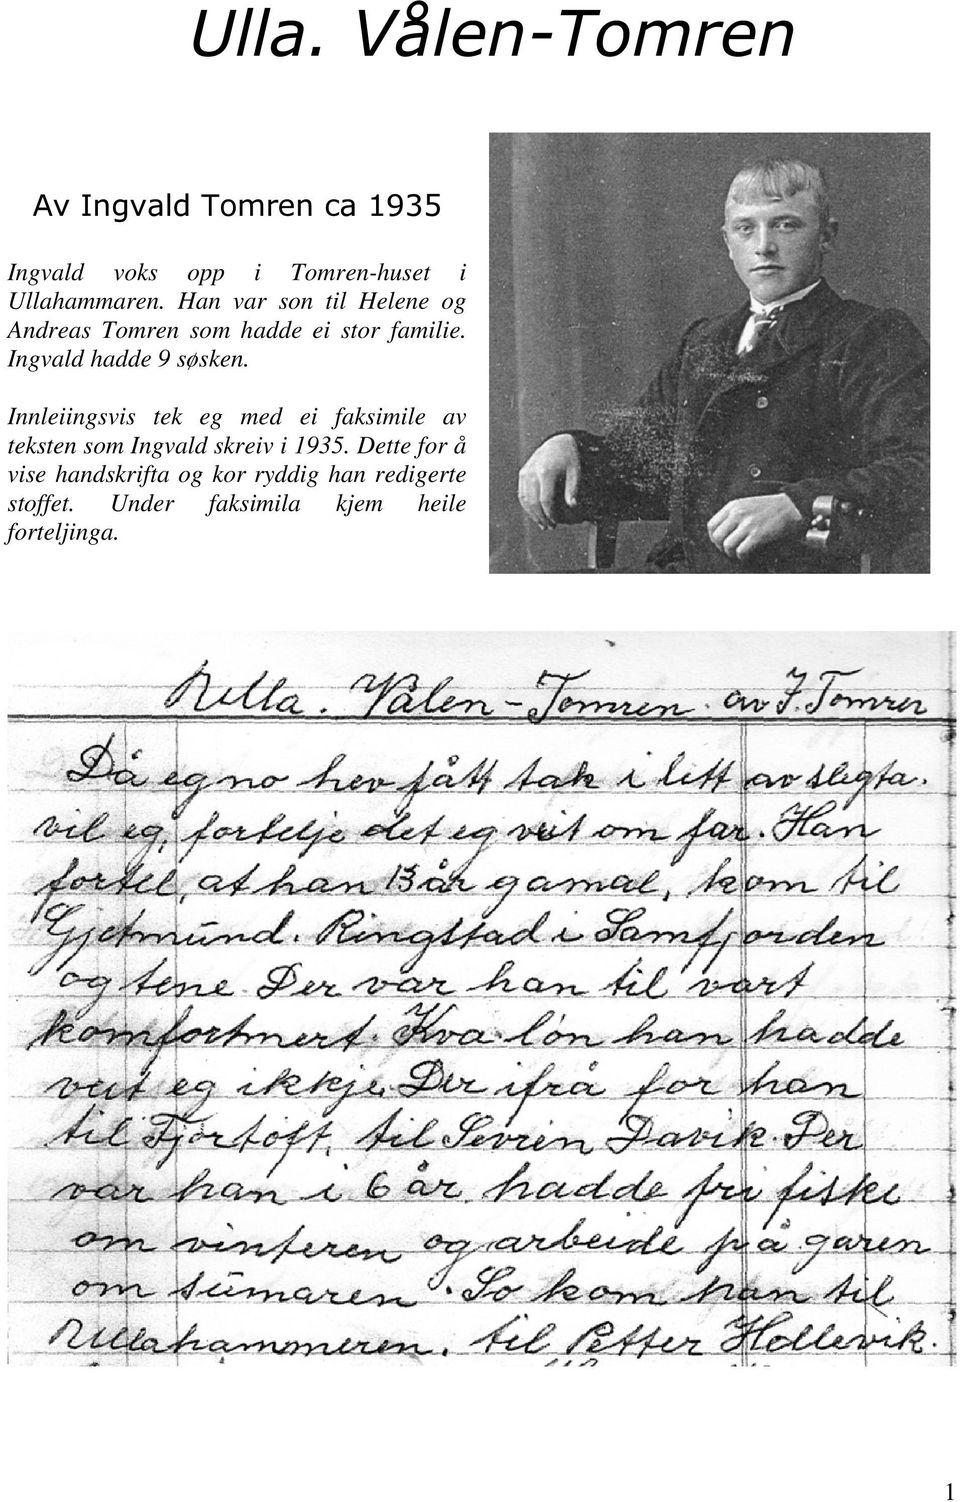 Ulla. Vålen-Tomren
Av Ingvald Tomren ca 1935
Ingvald voks opp i Tomren-huset i
Ullahammaren. Han var son til Helene og
Andreas Tomren som hadde ei stor familie.
Ingvald hadde 9 søsken.
Innleiingsvis tek eg med ei faksimile av
teksten som Ingvald skreiv i 1935. Dette for å
vise handskrifta og kor ryddig han redigerte
stoffet. Under faksimila kjem heile
forteljinga.
Ulla. Vålen-Tomren. av I. Tomren
Då eg no hev fått tak i litt av slegta.
vil eg, fortelje det eg veit om far. Han
fortel, at han 13 år gamal, kom til
Gjetmund. Ringstad i Samfjorden
og tene. Der var han til vart
komfortmert. Kva løn han hadde
veit eg ikkje. Der ifrå for han
til Fjørtoft, til Sevrin Davik. Der
var han i 6 år, hadde fri fiske
om vinteren og arbeide på garen
om sumaren. So kom han til
Ullahammeren, til Petter Hellevik.
1